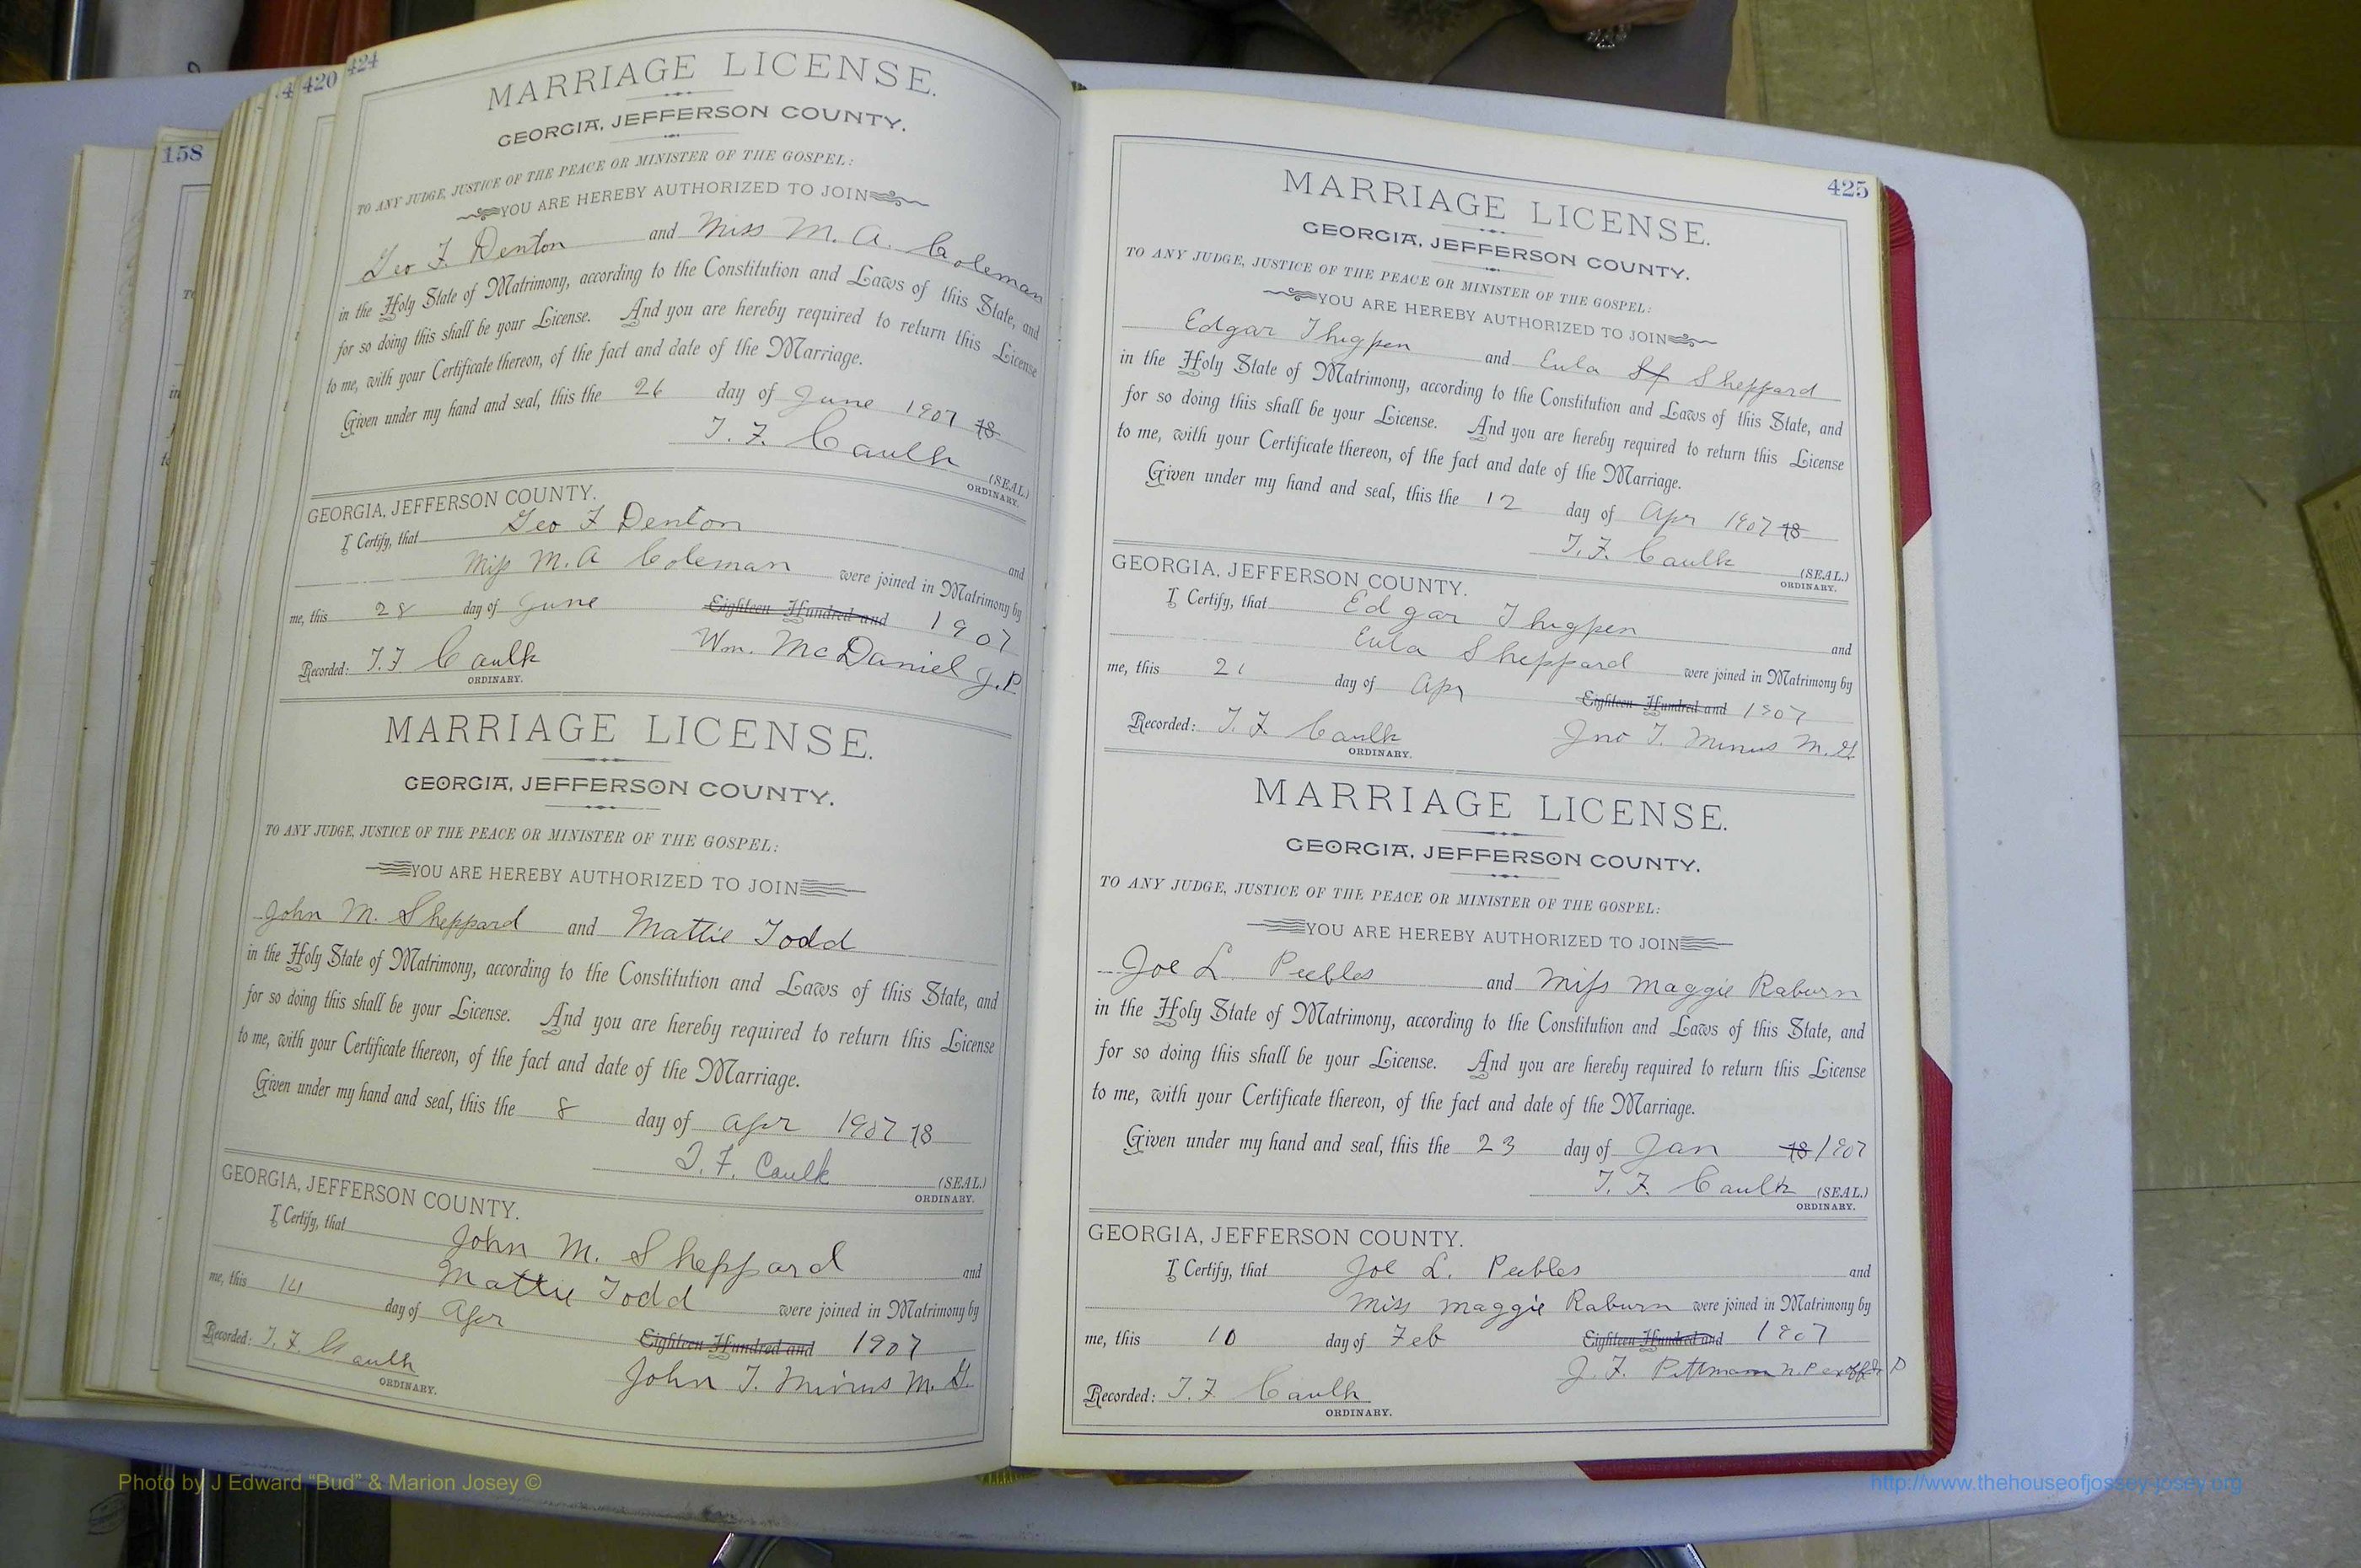 158
420
424
MARRIAGE LICENSE.
GEORGIA, JEFFERSON COUNTY.
TO ANY JUDGE, JUSTICE OF THE PEACE OR MINISTER OF THE GOSPEL:
YOU ARE HEREBY AUTHORIZED TO JOIN
Geo F. Denton and Miss M. A. Coleman
in the Holy State of Matrimony, according to the Constitution and Laws of this State, and
for so doing this shall be your License. And you are hereby required to return this License
to me, with your Certificate thereon, of the fact and date of the Marriage.
Given under my hand and seal, this the 26 day of June 1907 18
T. F. Caulk (SEAL.)
ORDINARY.
GEORGIA, JEFFERSON COUNTY.
I Certify, that Geo F Denton and
Miss M. A Coleman were joined in Matrimony by
me, this 28 day of June Eighteen Hundred and 1907
Wm. McDaniel J.P.
Recorded: T. F Caulk
ORDINARY.
MARRIAGE LICENSE.
GEORGIA, JEFFERSON COUNTY.
TO ANY JUDGE, JUSTICE OF THE PEACE OR MINISTER OF THE GOSPEL:
YOU ARE HEREBY AUTHORIZED TO JOIN
John M. Sheppard and Mattie Todd
in the Holy State of Matrimony, according to the Constitution and Laws of this State, and
for so doing this shall be your License. And you are hereby required to return this License
to me, with your Certificate thereon, of the fact and date of the Marriage.
Given under my hand and seal, this the 8 day of Apr 1907 18
T. F. Caulk (SEAL.)
ORDINARY.
GEORGIA, JEFFERSON COUNTY.
I Certify, that John M. Sheppard and
Mattie Todd were joined in Matrimony by
me, this 14 day of Apr Eighteen Hundred and 1907
John T. Minus M. G.
Recorded: T. F. Caulk
ORDINARY.
425
MARRIAGE LICENSE.
GEORGIA, JEFFERSON COUNTY.
TO ANY JUDGE, JUSTICE OF THE PEACE OR MINISTER OF THE GOSPEL:
YOU ARE HEREBY AUTHORIZED TO JOIN
Edgar Thigpen and Eula Sheppard
in the Holy State of Matrimony, according to the Constitution and Laws of this State, and
for so doing this shall be your License. And you are hereby required to return this License
to me, with your Certificate thereon, of the fact and date of the Marriage.
Given under my hand and seal, this the 12 day of Apr 1907 18
T. F. Caulk (SEAL.)
ORDINARY.
GEORGIA, JEFFERSON COUNTY.
I Certify, that Edgar Thigpen and
Eula Sheppard were joined in Matrimony by
me, this 21 day of Apr Eighteen Hundred and 1907
Jno T. Minus M. G.
Recorded: T. F Caulk
ORDINARY.
MARRIAGE LICENSE.
GEORGIA, JEFFERSON COUNTY.
TO ANY JUDGE, JUSTICE OF THE PEACE OR MINISTER OF THE GOSPEL:
YOU ARE HEREBY AUTHORIZED TO JOIN
Joe L. Peebles and Miss Maggie Raburn
in the Holy State of Matrimony, according to the Constitution and Laws of this State, and
for so doing this shall be your License. And you are hereby required to return this License
to me, with your Certificate thereon, of the fact and date of the Marriage.
Given under my hand and seal, this the 23 day of Jan 18 1907
T. F. Caulk (SEAL.)
ORDINARY.
GEORGIA, JEFFERSON COUNTY.
I Certify, that Joe L. Peebles and
Miss Maggie Raburn were joined in Matrimony by
me, this 10 day of Feb Eighteen Hundred and 1907
J. F. Pittman N. P
Recorded: T. F Caulk
ORDINARY.
Photo by J Edward “Bud” & Marion Josey ©
http://www.thehouseofjossey-josey.org